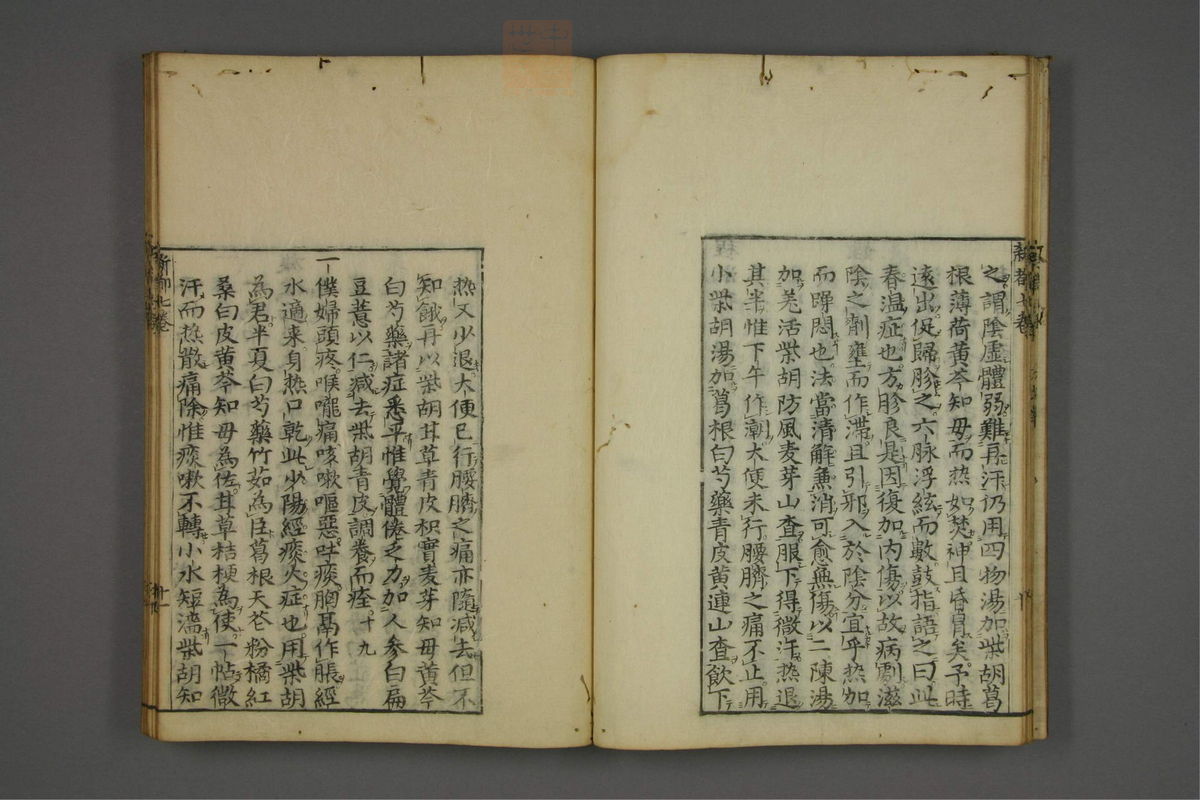 之謂陰虛體弱難再汗仍用四物湯加柴胡葛
根薄荷黃芩知母而热如焚神且昏冒矣予時
遠出促歸胗之六脉浮絃而數鼓指語之曰此
春温症也方胗良是因復加内傷以故病劇滋
陰之劑壅而作滯且引邪入於陰分宜乎热加
而躁悶也法當清解兼消可愈無傷以二陳湯
加羌活柴胡防風麦芽山査服下得微汗热退
其半惟下午作潮大便未行腰臍之痛不止用
小柴胡湯加葛根白芍藥青皮黃連山査飲下
热又少退大便已行腰臍之痛亦隨減去但不
知餓再以柴胡甘草青皮枳實麦芽知母黃芩
白芍藥諸症悉平惟覺體倦乏力加人參白扁
豆薏苡仁減去柴胡青皮調養而痊十九
一僕婦頭疼喉嚨痛咳嗽嘔惡吐痰胸鬲作脹經
水適来身热口乾此少陽經痰火症也用柴胡
為君半夏白芍藥竹茹為臣葛根天花粉橘紅
桑白皮黃芩知母為佐甘草桔梗為使一帖微
汗而热散痛除惟痰嗽不轉小水短濇柴胡知